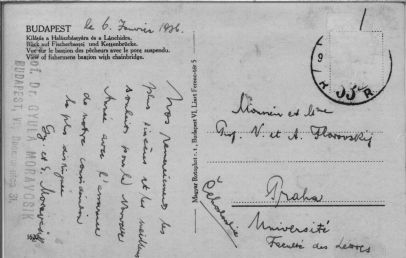 BUDAPEST
le 6. Janvier 1936.
Kilátás a Halászbástyára és a Lánchídra.
Blick auf Fischerbastei und Kettenbrücke.
Vue sur le bastion des pêcheurs avec le pont suspendu.
View of fishermens bastion with chainbridge.
Nos remerciements les
plus sincères et les meilleurs
souhaits pour la Nouvelle
Année avec l'assurance
de notre considération
la plus distinguée
Dr. GYULA MORAVCSIK
BUDAPEST, VI.
Magyar Rotaglot r.-t., Budapest VI. Liszt Ferenc-tér 5
9
33
R
Monsieur et Mme
Prof. V. et A. Florovskij
Praha
Université
Faculté des Lettres